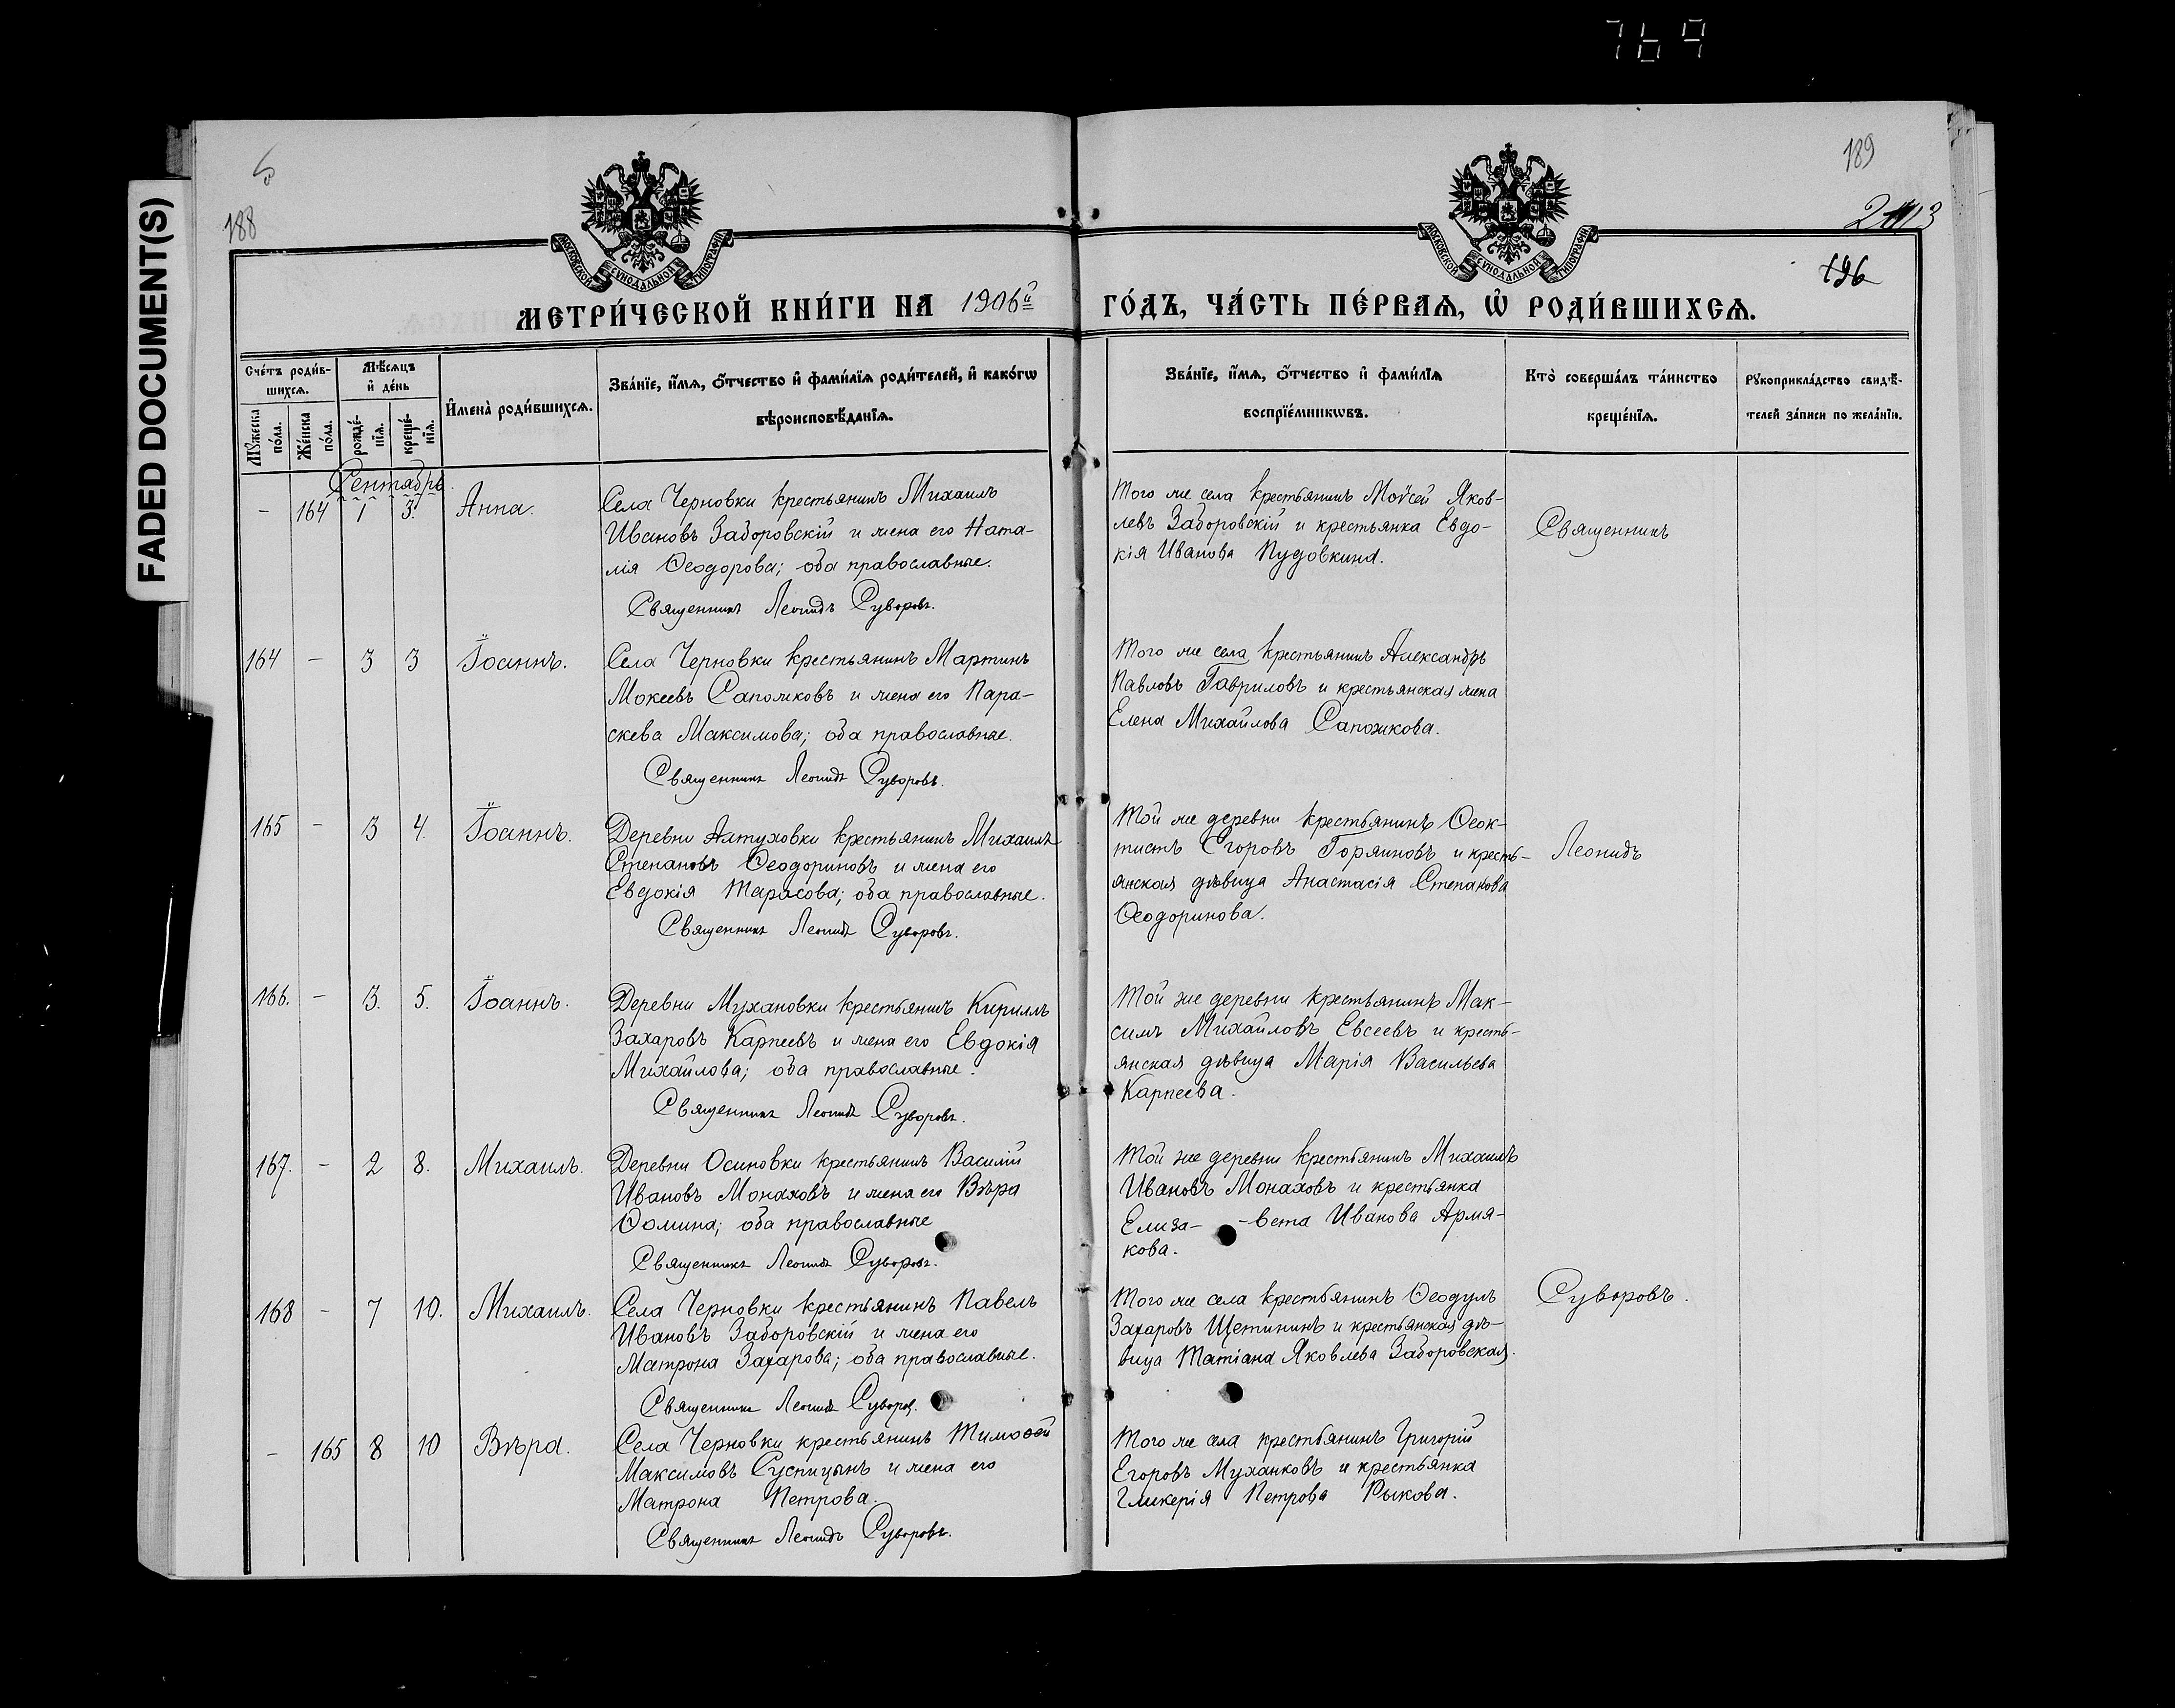 769
FADED DOCUMENT(S)
188
189
196
МОСКОВСКОЙ СѴНОДАЛЬНОЙ ТИПОГРАФІИ
МОСКОВСКОЙ СѴНОДАЛЬНОЙ ТИПОГРАФІИ
МЕТРИ́ЧЕСКОЙ КНИ́ГИ НА 1906й
ГО́ДЪ, ЧА́СТЬ ПЕ́РВАѦ, Ѽ РОДИ́ВШИХСѦ.
Сче́тъ роди́в-
шихсѧ.
Мѣ́сѧцъ
и҆ де́нь
Мꙋ́жеска по́ла.
Же́нска по́ла.
рожде́-нїѧ.
креще́-нїѧ.
И҆мена̀ роди́вшихсѧ.
Зва́нїе, и҆́мѧ, ѻ҆́тчество и҆ фами́лїѧ роди́телей, и҆ како́гѡ
вѣроисповѣ́данїѧ.
Зва́нїе, и҆́мѧ, ѻ҆́тчество и҆ фами́лїѧ
воспрїе́мникѡвъ.
Кто̀ соверша́лъ та́инство
креще́нїѧ.
Рꙋкоприкла́дство свидѣ́-
телей за́писи по жела́нїю.
Сентябрь.
– 164 1 3. Анна.
Села Черновки крестьянинъ Михаилъ
Ивановъ Заборовскій и жена его Ната-
лія Ѳеодорова; оба православные.
Священникъ Леонидъ Суворовъ.
Того же села крестьянинъ Моѵсей Яков-
левъ Заборовскій и крестьянка Евдо-
кія Иванова Пудовкина.
Священникъ
164 – 3 3 Іоаннъ.
Села Черновки крестьянинъ Мартинъ
Мокеевъ Сапожковъ и жена его Пара-
скева Максимова; оба православные.
Священникъ Леонидъ Суворовъ.
Того же села крестьянинъ Александръ
Павловъ Гавриловъ и крестьянская жена
Елена Михайлова Сапожкова.
165 – 3 4. Іоаннъ.
Деревни Алтуховки крестьянинъ Михаилъ
Степановъ Ѳеодориновъ и жена его
Евдокія Тарасова; оба православные.
Священникъ Леонидъ Суворовъ.
Той же деревни крестьянинъ Ѳеок-
тистъ Егоровъ Горяиновъ и кресть-
янская дѣвица Анастасія Степанова
Ѳеодоринова.
Леонидъ
166. – 3. 5. Іоаннъ.
Деревни Мухановки крестьянинъ Кириллъ
Захаровъ Карпеевъ и жена его Евдокія
Михайлова; оба православные.
Священникъ Леонидъ Суворовъ.
Той же деревни крестьянинъ Мак-
симъ Михайловъ Евсеевъ и кресть-
янская дѣвица Марія Васильева
Карпеева.
167. – 2 8. Михаилъ.
Деревни Осиновки крестьянинъ Василій
Ивановъ Монаховъ и жена его Вѣра
Ѳомина; оба православные
Священникъ Леонидъ Суворовъ.
Той же деревни крестьянинъ Михаилъ
Ивановъ Монаховъ и крестьянка
Елиза- -вета Иванова Армя-
кова.
168 – 7 10. Михаилъ.
Села Черновки крестьянинъ Павелъ
Ивановъ Заборовскій и жена его
Матрона Захарова; оба православные.
Священникъ Леонидъ Суворов.
Того же села крестьянинъ Ѳеодулъ
Захаровъ Щетининъ и крестьянская дѣ-
вица Татіана Яковлева Заборовская.
Суворовъ.
– 165 8 10 Вѣра.
Села Черновки крестьянинъ Тимоѳей
Максимовъ Суспицынъ и жена его
Матрона Петрова.
Священникъ Леонидъ Суворовъ.
Того же села крестьянинъ Григорій
Егоровъ Муханковъ и крестьянка
Гликерія Петрова Рыкова.